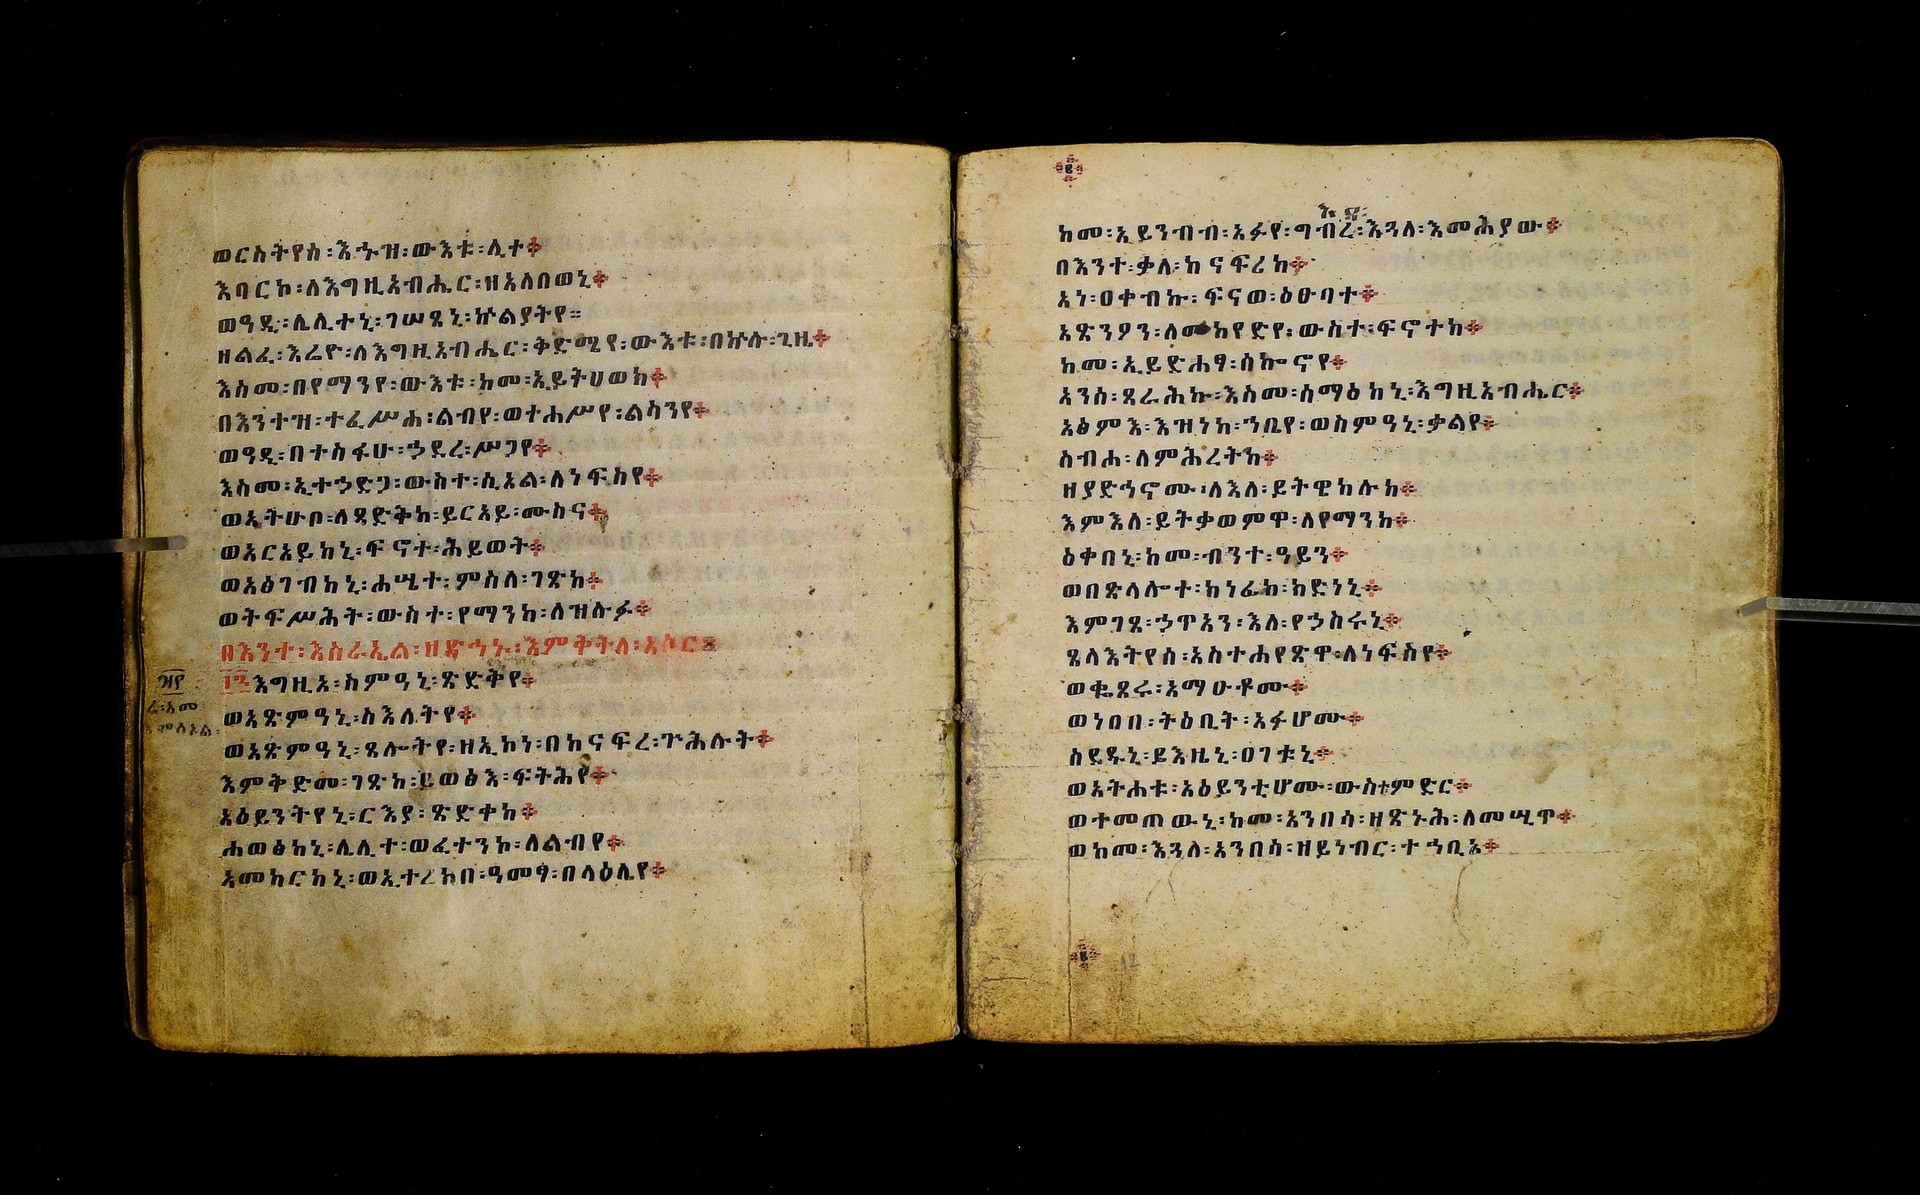 ወርስትየሰ፡እኁዝ፡ውእቱ፡ሊተ።
እባርኮ፡ለእግዚአብሔር፡ዘአለበወኒ።
ወዓዲ፡ሌሊተኒ፡ገሠጻኒ፡ኵልያትየ።
ዘልፈ፡እሬዮ፡ለእግዚአብሔር፡ቅድሜየ፡ውእቱ፡በኵሉ፡ጊዜ።
እስመ፡በየማንየ፡ውእቱ፡ከመ፡ኢይትሀወክ።
በእንተዝ፡ተፈሥሐ፡ልብየ፡ወተሐሥየ፡ልሳንየ።
ወዓዲ፡በተስፋሁ፡ኃደረ፡ሥጋየ።
እስመ፡ኢተኃድጋ፡ውስተ፡ሲኦል፡ለነፍስየ።
ወኢትሁቦ፡ለጻድቅከ፡ይርአይ፡ሙስና።
ወአርአይከኒ፡ፍኖተ፡ሕይወት።
ወአፅገብከኒ፡ሐሤተ፡ምስለ፡ገጽከ።
ወትፍሥሕት፡ውስተ፡የማንከ፡ለዝሉፉ።
በእንተ፡እስራኤል፡ዘድኅኑ፡እምቅትለ፡አሶር።
፲፮እግዚአ፡ስምዓኒ፡ጽድቅየ።
ወአጽምዓኒ፡ስእለትየ።
ወአጽምዓኒ፡ጸሎትየ፡ዘኢኮነ፡በከናፍረ፡ጕሕሉት።
እምቅድመ፡ገጽከ፡ይወፅእ፡ፍትሕየ።
አዕይንትየኒ፡ርእያ፡ጽድቀከ።
ሐወፅከኒ፡ሌሊተ፡ወፈተንኮ፡ለልብየ።
አመከርከኒ፡ወኢተረክበ፡ዓመፃ፡በላዕሌየ።
ከመ፡ኢይንብብ፡አፉየ፡ግብረ፡እጓለ፡እመሕያው።
በእንተ፡ቃለ፡ከናፍሪከ።
አነ፡ዐቀብኩ፡ፍናወ፡ዕፁባተ።
አጽንዖን፡ለመከየድየ፡ውስተ፡ፍኖትከ።
ከመ፡ኢይድሐፃ፡ሰኰናየ።
አንሰ፡ጸራሕኩ፡እስመ፡ሰማዕከኒ፡እግዚአብሔር።
አፅምእ፡እዝነከ፡ኀቤየ፡ወስምዓኒ፡ቃልየ።
ስብሐ፡ለምሕረትከ።
ዘያድኅኖሙ፡ለእለ፡ይትዌከሉከ።
እምእለ፡ይትቃወምዋ፡ለየማንከ።
ዕቀበኒ፡ከመ፡ብንተ፡ዓይን።
ወበጽላሎተ፡ክነፊከ፡ክድነኒ።
እምገጸ፡ኃጥአን፡እለ፡የኃስሩኒ።
ጸላእትየሰ፡አስተሐየጽዋ፡ለነፍስየ።
ወቈጸሩ፡አማዑቶሙ።
ወነበበ፡ትዕቢት፡አፉሆሙ።
ሰደዱኒ፡ይእዜኒ፡ዐገቱኒ።
ወአትሐቱ፡አዕይንቲሆሙ፡ውስተ፡ምድር።
ወተመጠውኒ፡ከመ፡አንበሳ፡ዘጽኑሕ፡ለመሢጥ።
ወከመ፡እጓለ፡አንበሳ፡ዘይነብር፡ተኀቢኦ።
12